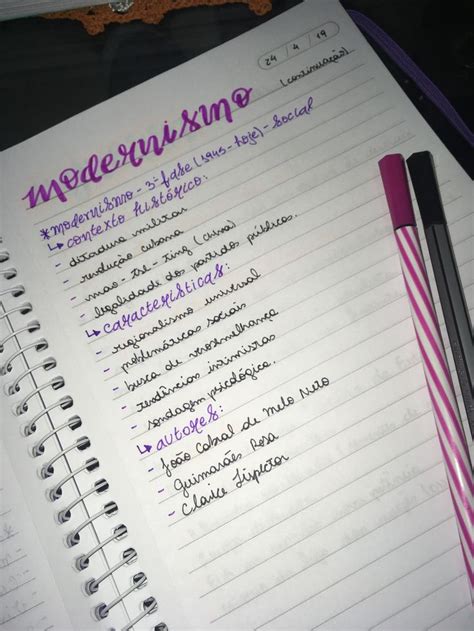 24 / 4 / 19
(continuação)
modernismo
*modernismo - 3ª fase (1945 - hoje) - social
↳ contexto histórico:
- ditadura militar
- revolução cubana
- mao - tsé - ting (china)
- legalidade do partido públicos.
↳ características:
- regionalismo universal
- problemáticas sociais
- busca de verossemelhança
- tendências intimistas
- sondagem psicológica.
↳ autores:
- João Cabral de Melo Neto
- Guimarães Rosa
- Clarice Lispector